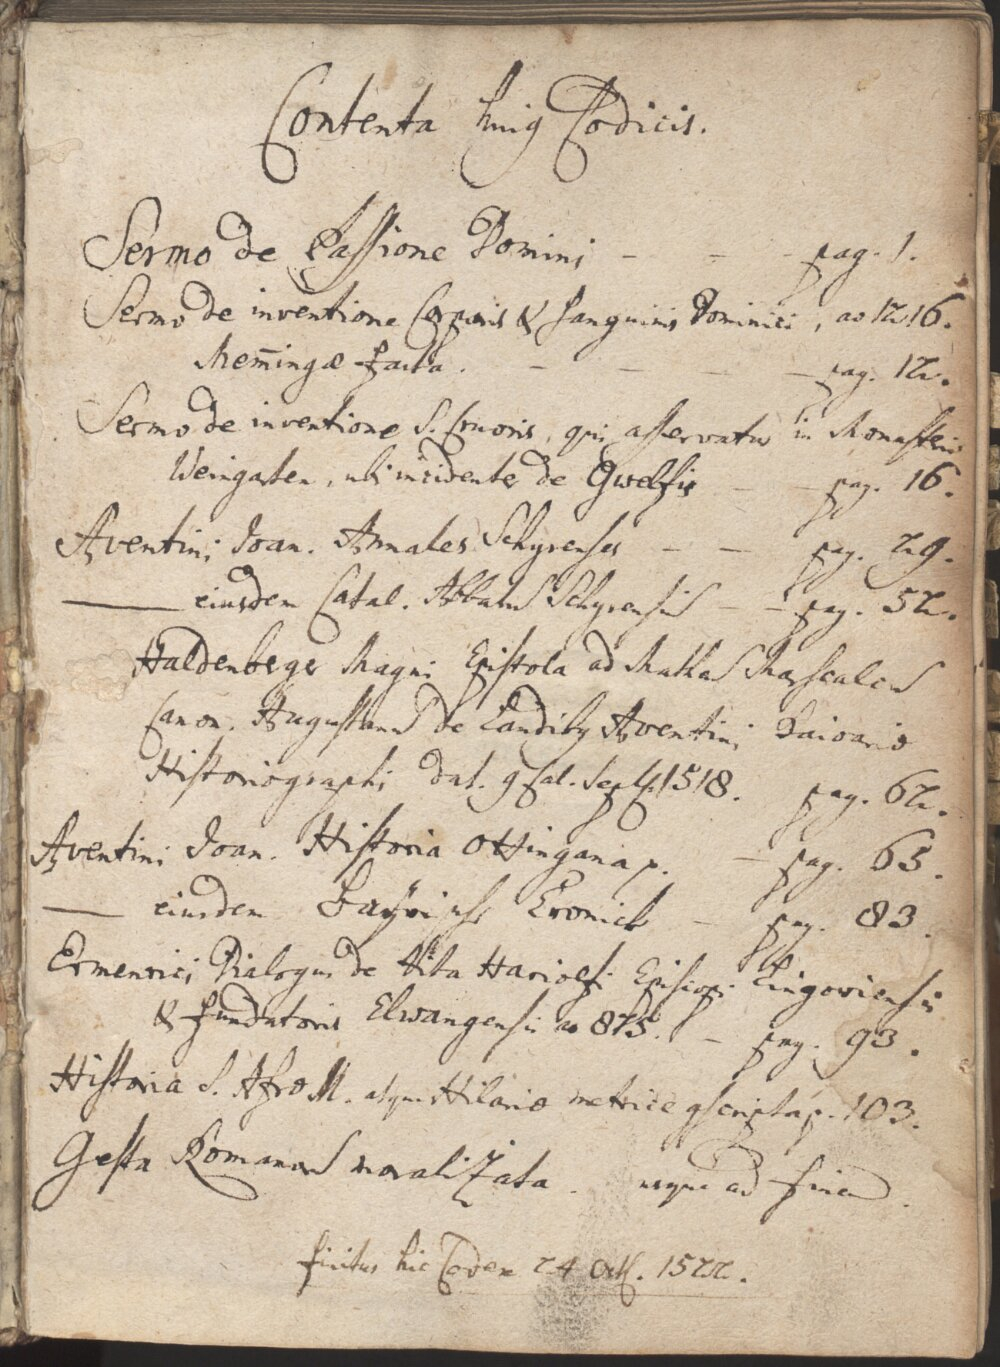 Contenta huius Codicis.
Sermo de Passione Domini – – – pag. 1.
Sermo de inventione Corporis & sanguinis Dominici, ao 1216.
Mem̄ingæ facta. – – – – pag. 12.
Sermo de inventione S. Cruoris, qui asservatur in Monasterio
Weingarten, ubi incidenter de Gwelfis – – pag. 16.
Aventini Joan. Annales Schyrenses – – pag. 29.
—— eiusdem Catal. Abbatum Schyrensium – – pag. 52.
Haldenberger Magni Epistola ad Matheum Marscalcum
Canon. Augustanum de Laudibus Aventini Baioario
Historiographi dat. 9 Cal. Sept. 1518. pag. 62.
Aventini Joan. Historia Ottingana p. – pag. 63.
—— eiusdem Bayrisch Cronick – pag. 83.
Ermenrici Dialogus de Vita Hariolfi Episcopi Lingoviensis
& fundatoris Elwangensis ao 875. – pag. 93.
Historia S. Afræ M. atque Hilariæ metrice conscripta p. 103.
Gesta Romanorum moralizata. usque ad finem.
finitus hic Codex 24 Oct. 1522.